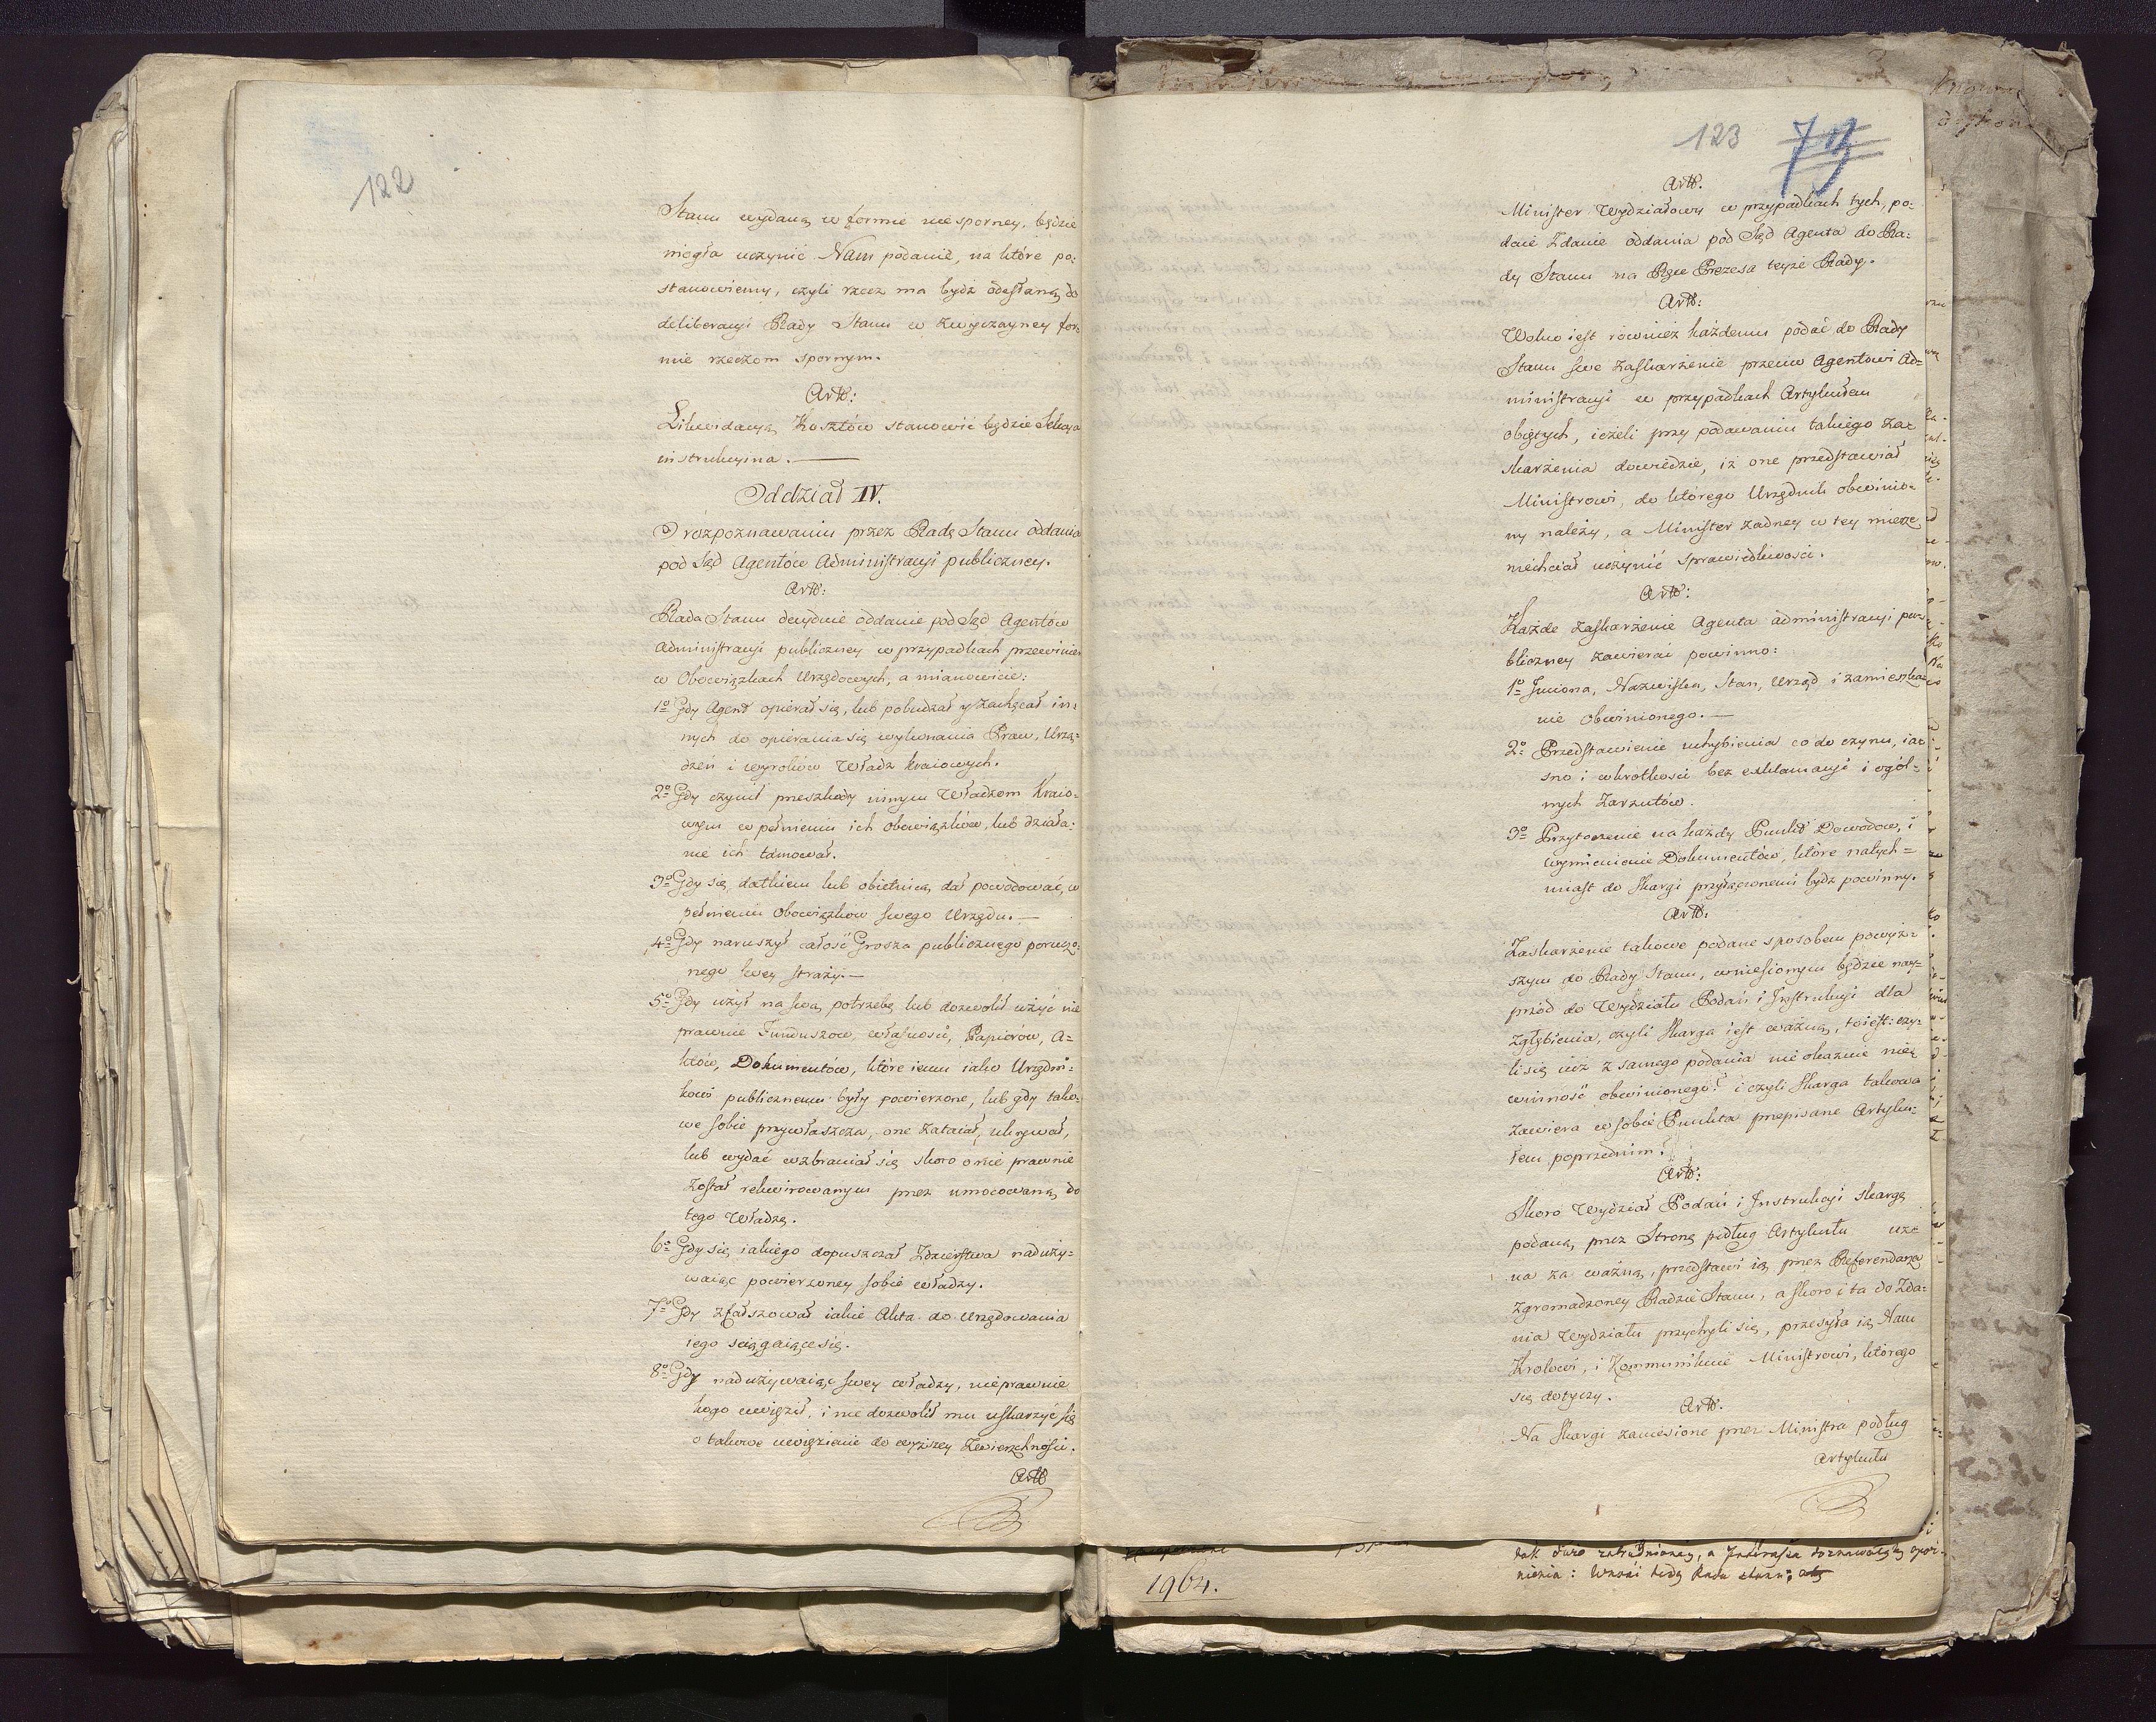 122
Stanu wydaną w formie nie sporney, będzie
mogła uczynić Nam podanie, na które po:
stanowiemy, czyli rzecz ma bydź odesłaną do
deliberacyi Rady Stanu w zwyczayney for:
mie rzeczom spornym.
Artł:
Likwidacyą Kosztów stanowić będzie Sekcya
instrukcyina.
Oddział IV.
O rozpoznawaniu przez Radę Stanu oddania
pod Sąd Agentów Administracyi publiczney.
Artł:
Rada Stanu decyduie oddanie pod Sąd Agentów
Administracyi publiczney w przypadkach przewinień
w Obowiązkach Urzędowych, a mianowicie:
1o Gdy Agent opierał się, lub pobudzał y zachęcał in:
nych do opierania się wykonania Praw, Urzą:
dzeń i wyroków Władz kraiowych.
2o Gdy czynił przeszkody innym Władzom Kraio:
wym w pełnieniu ich obowiązków, lub działa:
nie ich tamował.
3o Gdy się datkiem lub obietnicą dał powodować, w
pełnieniu Obowiązków swego Urzędu.
4o Gdy naruszył całość Grosza publicznego poruczo:
nego swey straży.
5o Gdy użył na swą potrzebę lub dozwolił użyć nie
prawnie Funduszow, własności, Papierów, A=
któw, Dokumentów, które iemu iako Urzędni:
kowi publicznemu były powierzone, lub gdy tako:
we sobie przywłaszcza, one zataiał, ukrywał,
lub wydać wzbraniał się skoro o nie prawnie
został rekwirowanym przez umocowaną do
tego Władzę.
6o Gdy się iakiego dopuszczał Zdzierstwa naduży=
waiąc powierzoney sobie władzy.
7o Gdy zfałszował iakie Akta do Urzędowania
iego sciągaiące się.
8o Gdy nadużywaiąc swey władzy, nieprawnie
kogo uwięził, i nie dozwolił mu uskarżyć się
o takowe uwięzienie do wyższey Zwierzchności.
Artł
123
Artł.
Minister Wydziałowy w przypadkach tych, po:
daie Zdanie oddania pod Sąd Agenta do Ra:
dy Stanu na Ręce Prezesa teyże Rady.
Artł:
Wolno iest również każdemu podać do Rady
Stanu swe zaskarżenie przeciw Agentowi Ad=
ministracyi w przypadkach Artykułem
obiętych, ieżeli przy podawaniu takiego za=
skarżenia dowiedzie, iż one przedstawiał
Ministrowi, do którego Urzędnik obwinio:
ny należy, a Minister żadney w tey mierze
niechciał uczynić sprawiedliwości.
Artł:
Każde zaskarżenie Agenta administracyi pu:
bliczney zawierać powinno:
1o Imiona, Nazwiska, Stan, Urząd i zamieszka:
nie obwinionego.
2o Przedstawienie uchybienia co do czynu, ia:
sno i wkrotkosci bez exklamacyi i ogól=
nych Zarzutów.
3o Przytoczenie na każdy Punkt Dowodow, i
wymienienie Dokumentów, które natych=
miast do skargi przyłączonemi bydz powinny.
Artł:
Zaskarżenie takowe podane sposobem powyż=
szym do Rady Stanu, wniesionym będzie nay=
przód do Wydziału Podań i Instrukcyi dla
zgłębienia, czyli skarga iest ważną, toiest: czy=
li się iuż z samego podania nie okazuie nie=
winność obwinionego? i czyli skarga takowa
zawiera w sobie Punkta przepisane Artyku:
łem poprzednim?
Artł:
Skoro Wydział Podań i Instrukcyi skargę
podaną, przez Stronę podług Artykułu uz=
na za ważną, przedstawi ią przez Referendarza
zgromadzoney Radzie Stanu, a skoro i ta do Zda:
nia Wydziału przychyli się, przesyła ią Nam
Krolowi, i Kommunikuie Ministrowi, którego
się dotyczy.
Artł.
Na skargi zaniesione przez Ministra podług
Artykułu
1964.